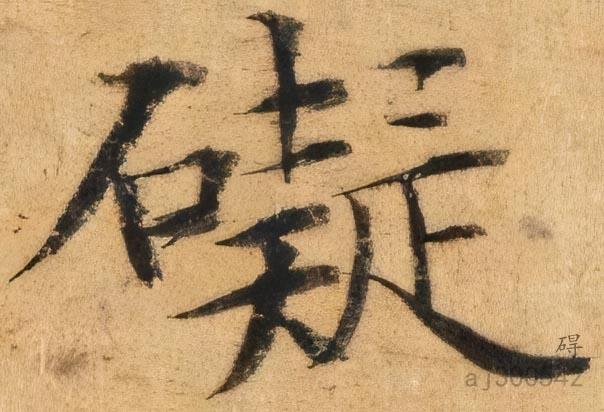 礙
碍
aj300542